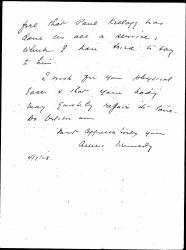 feel that Paul Kellogg has
done us all a service,
which I have tried to say
to him.
I wish for you physical
ease & that your body
may quickly regain its tone.
Most Appreciatively yours
Kennedy